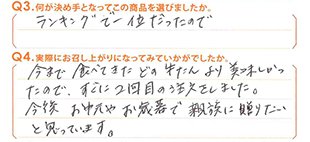 Q3.何が決め手となってこの商品を選びましたか。
ランキングで一位だったので
Q4.実際にお召し上がりになってみていかがでしたか。
今まで食べてきたどの牛たんより美味しかっ
たので、すぐに2回目の注文をしました。
今後お中元やお歳暮で親族に贈りたい
と思っています。